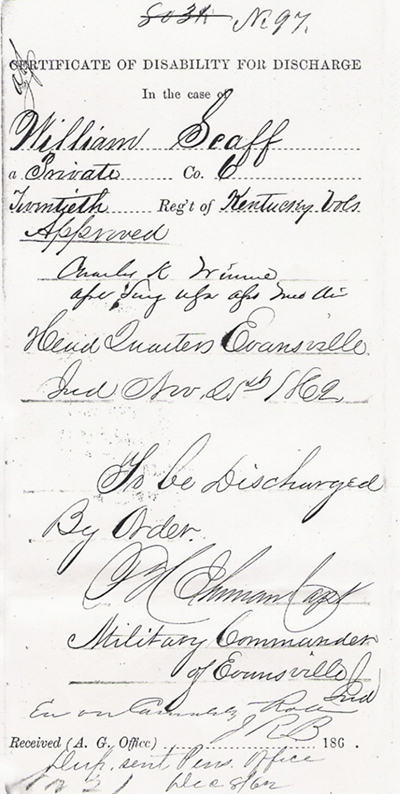 8034 No 97.
CERTIFICATE OF DISABILITY FOR DISCHARGE
In the case of
William Scaff
a Private Co. C
Twentieth Reg't of Kentucky Vols
Approved
Charles K Winne
Head Quarters Evansville
Ind Nov 25th 1862
To be Discharged
By Order.
Capt
Military Commander
of Evansville
Ind
on Casualty Roll
J R B
Received (A. G. Office) 186 .
Dup. sent Pens. Office
Dec 8/62